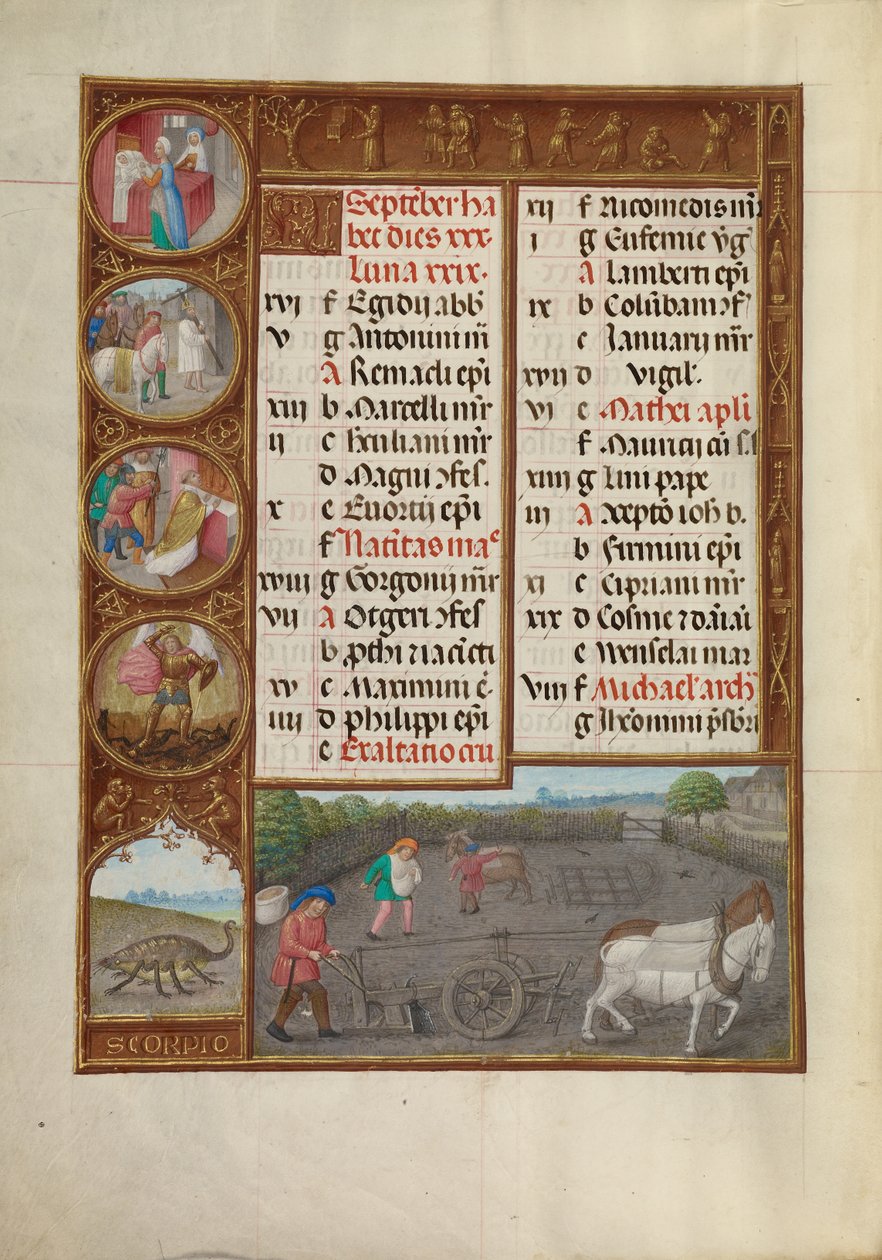 KL Septẽber ha
bet dies xxx.
Luna xxix.
xvi f Egidij abb̃
v g Antonini m̃
A Remacli ep̃i
xiii b Marcelli mr̃
ii c Huliani mr̃
d Magni ꝯfes.
x e Euortij ep̃i
f Natĩtas ma͛
xviii g Gorgonij mr̃
vii A Otgeri ꝯfes
b p̱thi ⁊ iacĩcti
xv c Maximini
iiii d philippi ep̃i
e Exaltatio cru
xij f Nicomedis mr̃
i g Eufemie v̾g̾
A Lamberti ep̃i
ix b Colũbani ꝯf̾
c Januarij mr̃
xvij d vigil̾.
vi e Mathei apl̃i
f Mauricij cũ s.
xiiij g Lini pape
iij A ꝯcepto ioh̃ b.
b Firmini ep̃i
xi c Cipriani mr̃
xix d Cosme ⁊ dãiai
e Wenselai mar
viij f Michael̾ arch̾
g Jh̾omini p̃sbr̃i
SCORPIO